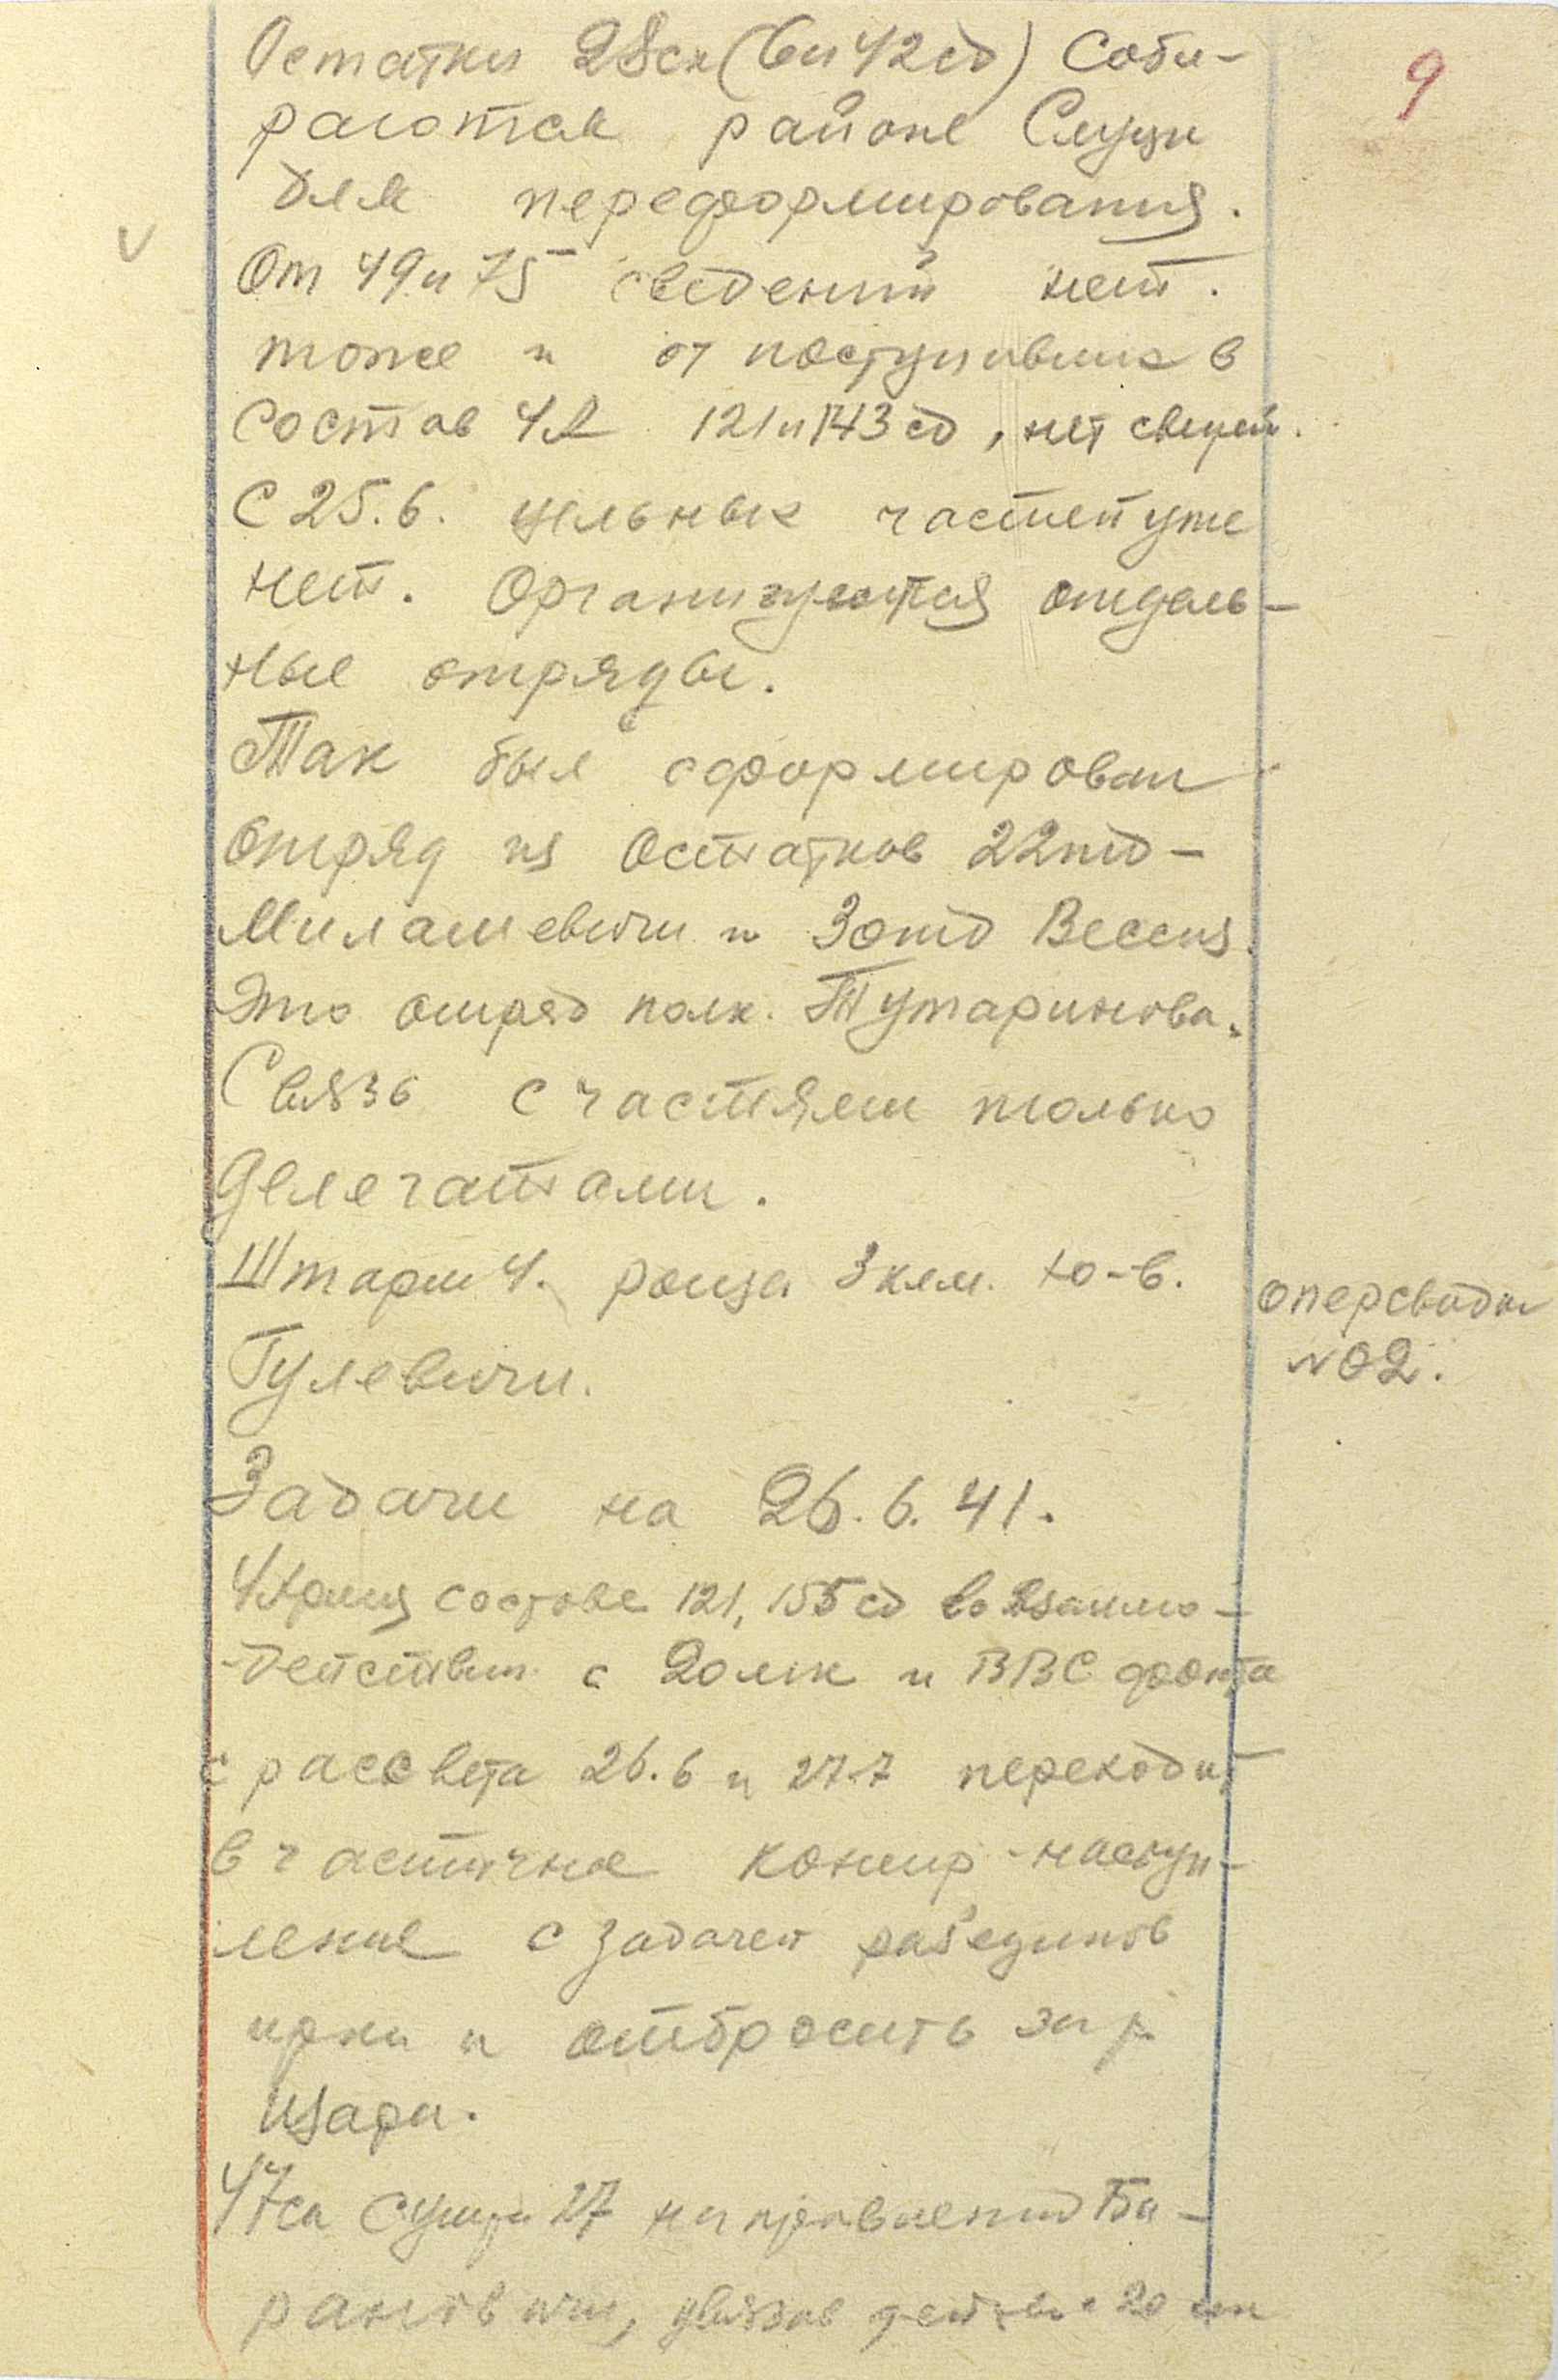 9
Остатки 28ск (6 и 42сд) соби-
раются районе Слуцк
для переформирования.
V
От 49 и 75 сведений нет.
тоже и от поступивших в
состав 4А 121 и 143 сд, нет сведен.
С 25.6. цельных частей уже
нет. Организуются отдель-
ные отряды.
Так был сформирован
отряд из остатков 22тд-
Милашевичи и 30тд Весея.
Это отряд полк. Тутаринова.
Связь с частями только
делегатами.
Штарм 4. роща 3 клм. ю-в.
Гулевичи.
оперсводка
№02.
Задачи на 26.6.41.
4 Армия составе 121, 155 сд во взаимо-
действии с 20мк и ВВС фронта
с рассвета 26.6 и 27.7 переходит
в частичное контр-наступ-
ление с задачей
и отбросить за р.
Щара.
47ск с утра 27 направлении Ба-
рановичи, увязав действ. с 20 мк